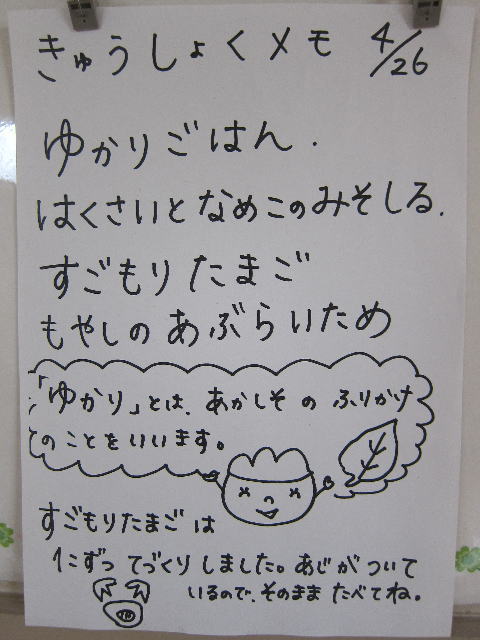 きゅうしょくメモ 4/26
ゆかりごはん.
はくさいとなめこのみそしる.
すごもりたまご
もやしのあぶらいため
「ゆかり」とは、あかしそのふりかけ
のことをいいます。
すごもりたまごは
1こずつてづくりしました。あじがついて
いるので、そのままたべてね。